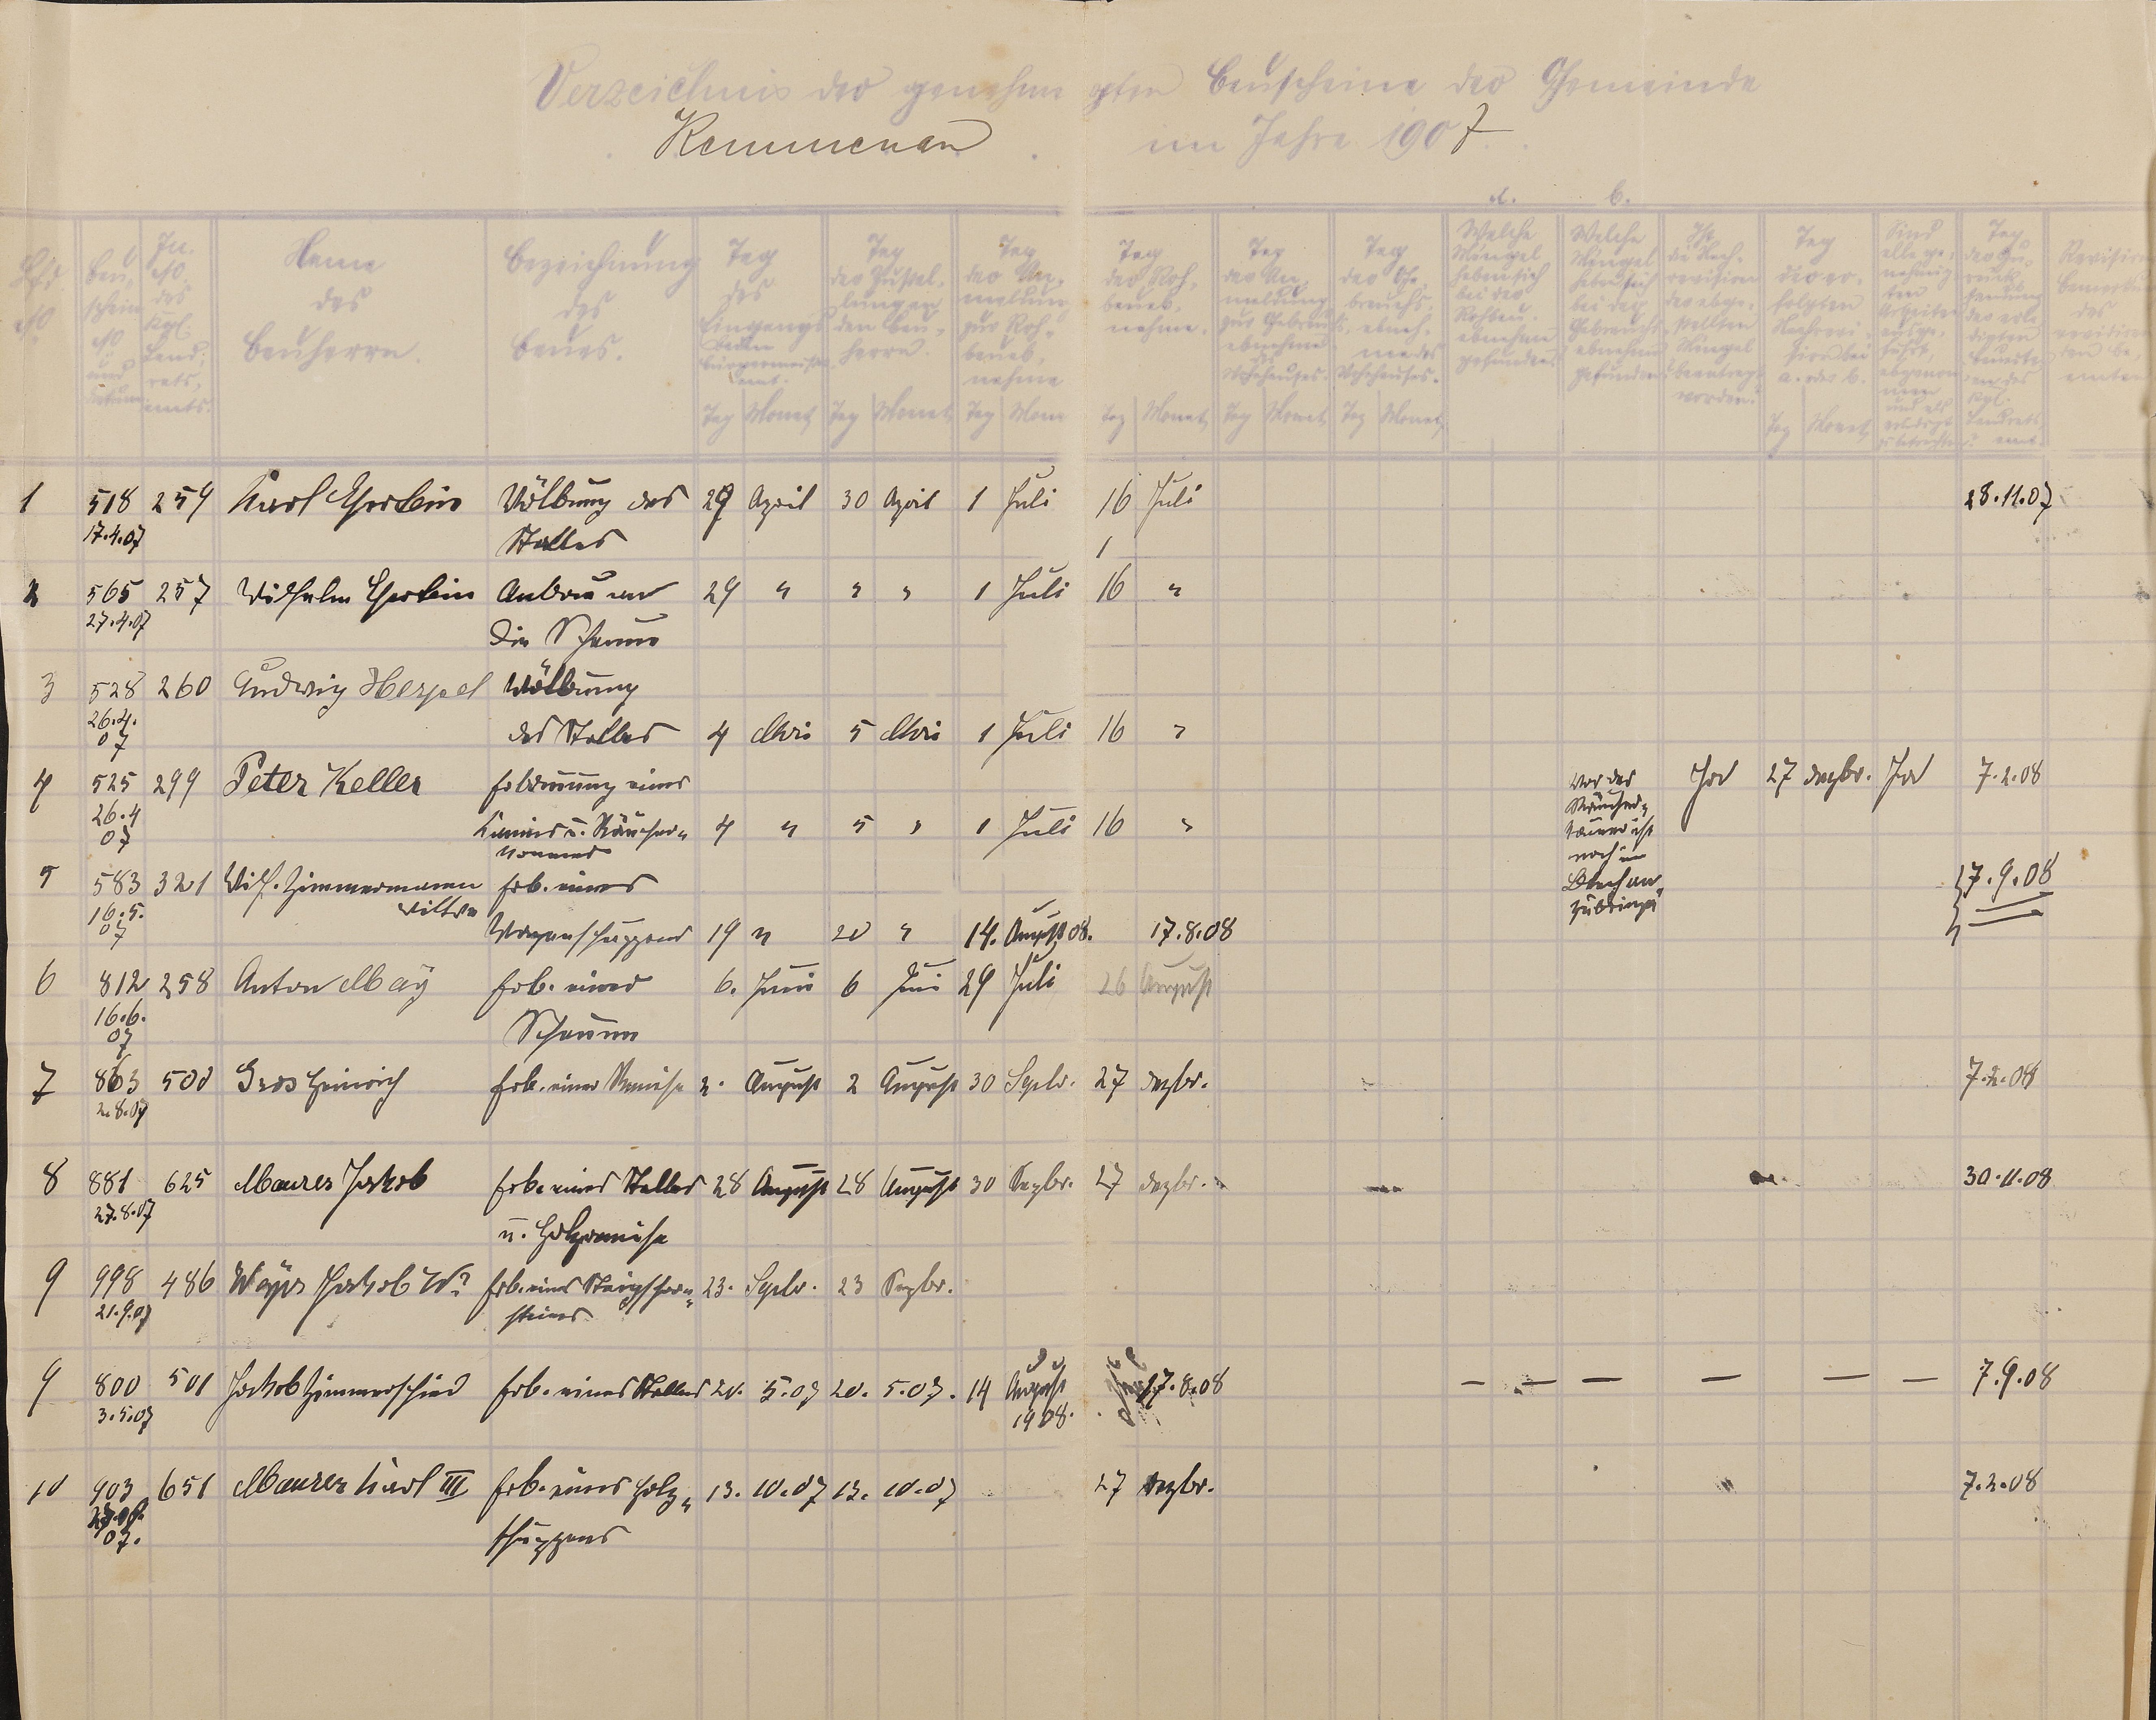 Verzeichnis der genehmigten Bauscheine der Gemeinde
Kemmenau im Jahre 1907.
a. b.
Lfd. No
Bauschein No und Datum
J. No. des Kgl. Landratsamts.
Name des Bauherrn.
Bezeichnung des Baues.
Tag des Eingangs beim Bürgermeisteramt. Tag Monat
Tag der Zustellung an den Bauherrn. Tag Monat
Tag der Anmeldung zur Rohbauabnahme Tag Monat
Tag der Rohbauabnahme. Tag Monat
Tag der Anmeldung zur Gebrauchsabnahme des Wohnhauses. Tag Monat
Tag der Gebrauchsabnahme des Wohnhauses. Tag Monat
Welche Mängel haben sich bei der Rohbauabnahme gefunden?
Welche Mängel haben sich bei der Gebrauchsabnahme gefunden?
Ist die Nachrevision der abgestellten Mängel beantragt worden?
Tag der erfolgten Nachrevision bei a. oder b. Tag Monat
Sind alle genehmigten Arbeiten ausgeführt, abgenommen und als erledigt zu betrachten?
Tag der Zurücksendung der erledigten an das Kgl. Landratsamt
1 518 254 Karl Wölbung des 29 April 30 April 1 Juli 16 Juli 28.11.07
17.4.07 Stalles 1
2 565 257 Wilhelm Anbau an 29 " " " 1 Juli 16 "
27.4.07 die Scheune
3 528 260 Ludwig Hespel Wölbung
26.4. des Stalles 4 Mai 5 Mai 1 Juli 16 "
07
4 525 299 Peter Keller Erbauung eines Vor der Ja 27 Dezbr. Ja 7.2.08
26.4 Kamins u. Räucher- 4 " 5 " 1 Juli 16 " Räucher-
07 kammer kammer ist
noch ein
Blech an-
zubringen
5 583 321 Wilh. Zimmermann Erb. eines 7.9.08
16.5. Witwe
07 Wagenschuppens 19 " 20 " 14. August 08. 17.8.08
6 812 258 Anton May Erb. einer 6. Juni 6 Juni 29 Juli 26 August
16.6. Scheune
07
7 863 500 Gros Heinrich Erb. einer Remise 2. August 2 August 30 Septr. 27 Dezbr. 7.2.08
2.8.07
8 881 625 Maurer Jakob Erb. eines Stalles 28 August 28 August 30 Sepbr. 27 Dezbr. 30.11.08
27.8.07 u. Holzremise
9 998 486 Jakob Erb. eines Steigschorn- 23. Septr. 23 Sepbr.
21.9.07 steines
9 800 501 Jakob Zimmerschied Erb. eines Stalles 20. 5.07 20. 5.07. 14 August 17.8.08 — — — — — — 7.9.08
3.5.07 1908.
10 903 651 Maurer Karl III Erb. eines Holz- 13. 10.07 13. 10.07 27 Dezbr. 7.2.08
07. schuppens